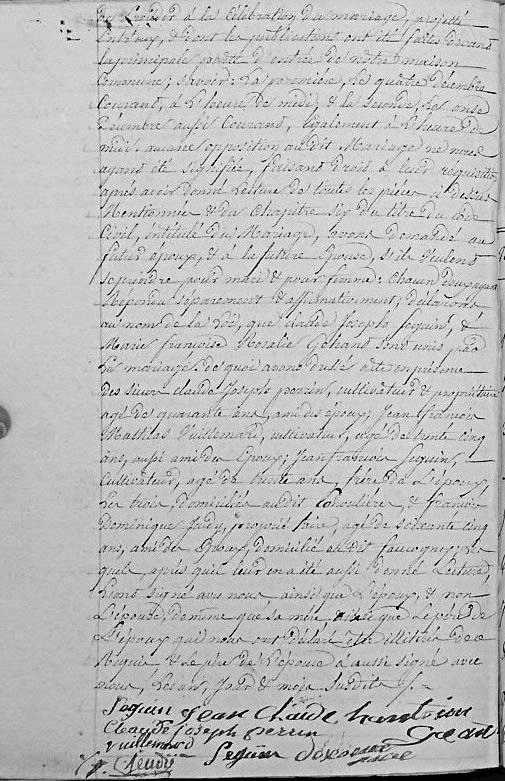 de procéder à la Célébration du mariage, projetté
entr'eux, & dont les publications ont été faites devant
la principale porte d'entrée de notre maison
Commune; savoir: La premiere, le quatre décembre
Courant, à l'heure de midi, & la seconde, le onze
Décembre aussi Courant, également à l'heure de
midi aucune opposition audit Mariage ne nous
ayant été signifiée, faisant droit à leur requisition,
après avoir donné Lecture de toutes les pièces ci dessus
Mentionnée & du Chapitre six du titre du code
Civil, intitulé du Mariage, avons demandé au
futur époux, & à la future épouse, s'ils veulent
se prendre pour mari & pour femme: Chacun d'eux ayant
Répondu séparement & affirmativement; déclarons
au nom de la Loi, que claude Joseph Seguin, &
Marie françoise Rosalie sont unis par
Le mariage, de quoi avons dressé acte en présence
des sieurs claude Joseph perrin, cultivateur & propriétaire
agé de quarante ans, ami des époux; Jean francois
Mathias Vuillemard, cultivateur, agé de trente cinq
ans, aussi ami des Epoux; Jean francois Seguin,
Cultivateur, agé de trente ans, frère de L'époux,
Les trois domiciliés audit & francois
Dominique propriétaire, agé de soixante cinq
ans, ami des Epoux, domicilié audit faucogney; les
quels, après qu'il leur en a été aussi donné Lecture,
L'ont signé avec nous ainsi que L'époux, & non
L'épouse, de même que sa mère, ainsi que Le père de
L'époux qui nous ont déclaré être illitérés de ce
Requis & Le père de L'épouse a aussi signé avec
nous, Les an, Jour & mois susdits
Seguin Jean Claude
Claude Joseph perrin
Vuillemard Seguin